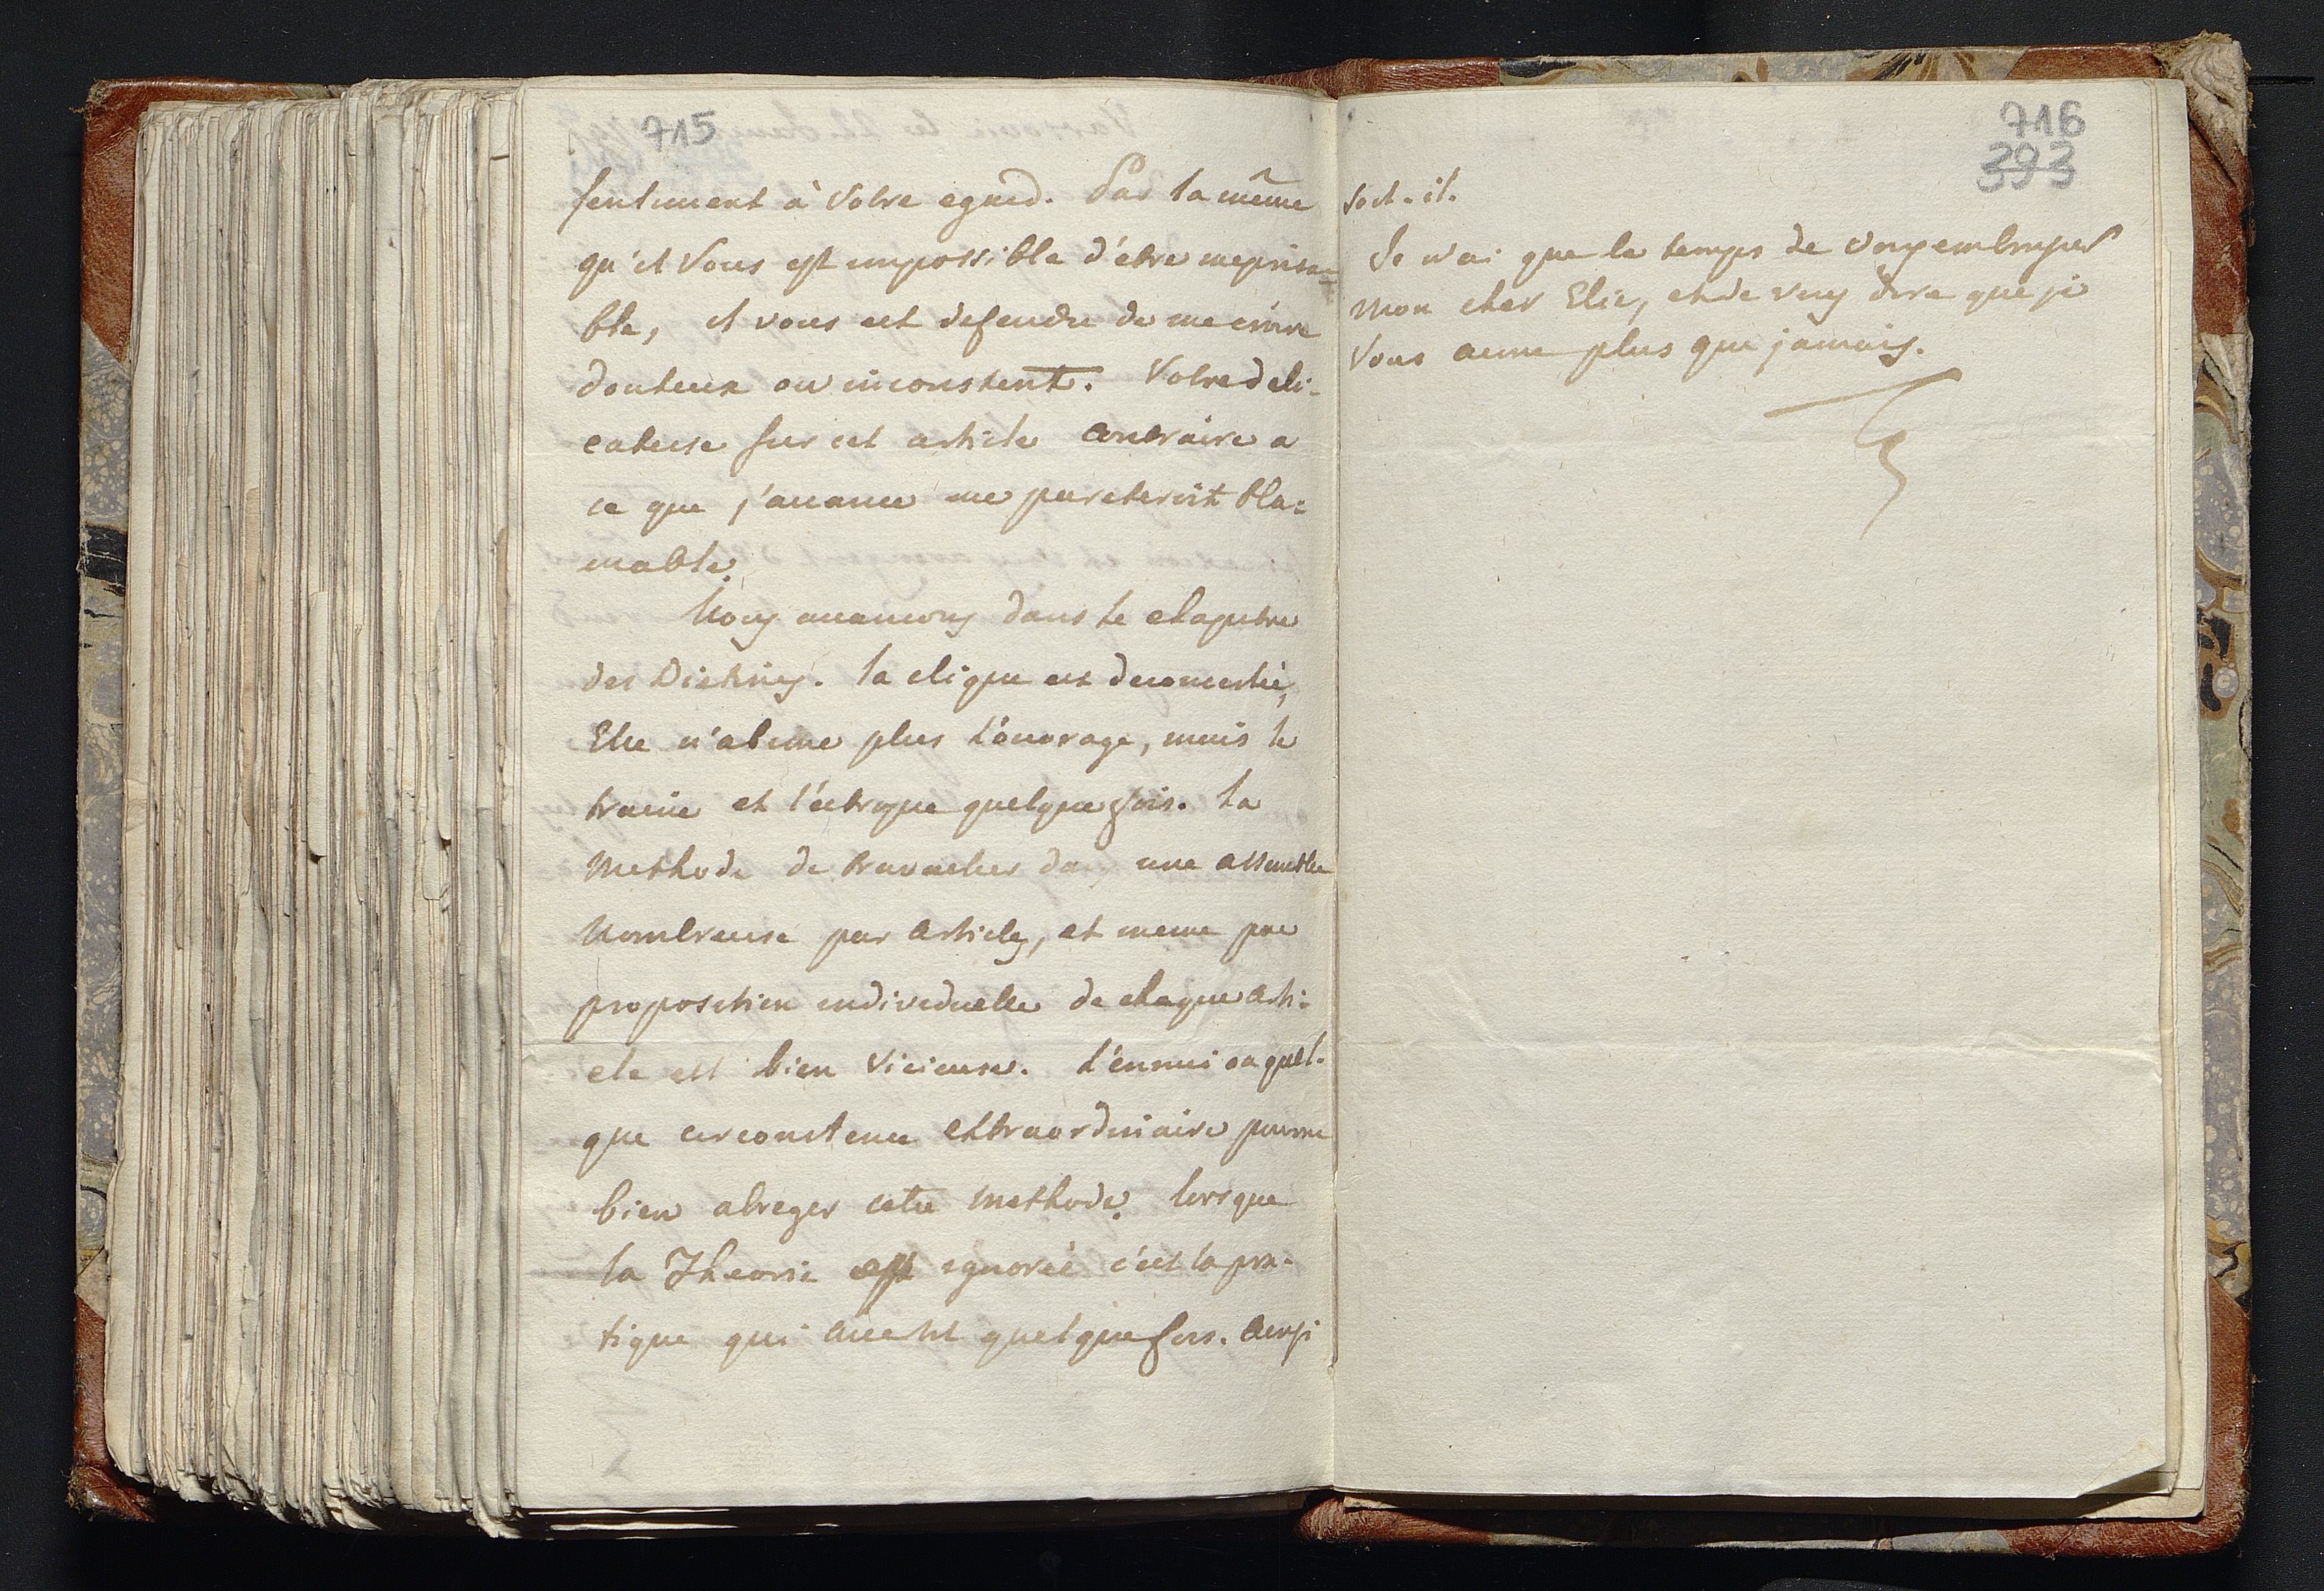 715
sentiment à Votre egard. Par la même
qu'il Vous est impossible d'être meprisa=
ble, il vous est defendu de me croire
douteux ou inconstent. Votre deli-
catesse sur cet article contraire a
ce que j'avance me pareteroit bla=
mable.
Nous avancons dans le chapitre
des Dietines. la clique est deconcertée,
Elle n'abime plus l'ouvrage, mais le
traine et l'estropie quelque fois. la
Methode de travailler dans une assemblée
Nombreuse par Articles, et meme par
proposition individuelle de chaque Arti=
cle est bien Vicieuse. L'ennui ou quel-
que circonstence extraordinaire pourra
bien abreger cette Methode. lorsque
la Theorie est ignorée c'est la pra-
tique qui quelque fois. Ainsi
716
393
soit-il.
Je n'ai que le temps de vous embrasser
Mon cher Elie, et de vous dire que je
Vous aime plus que jamais.